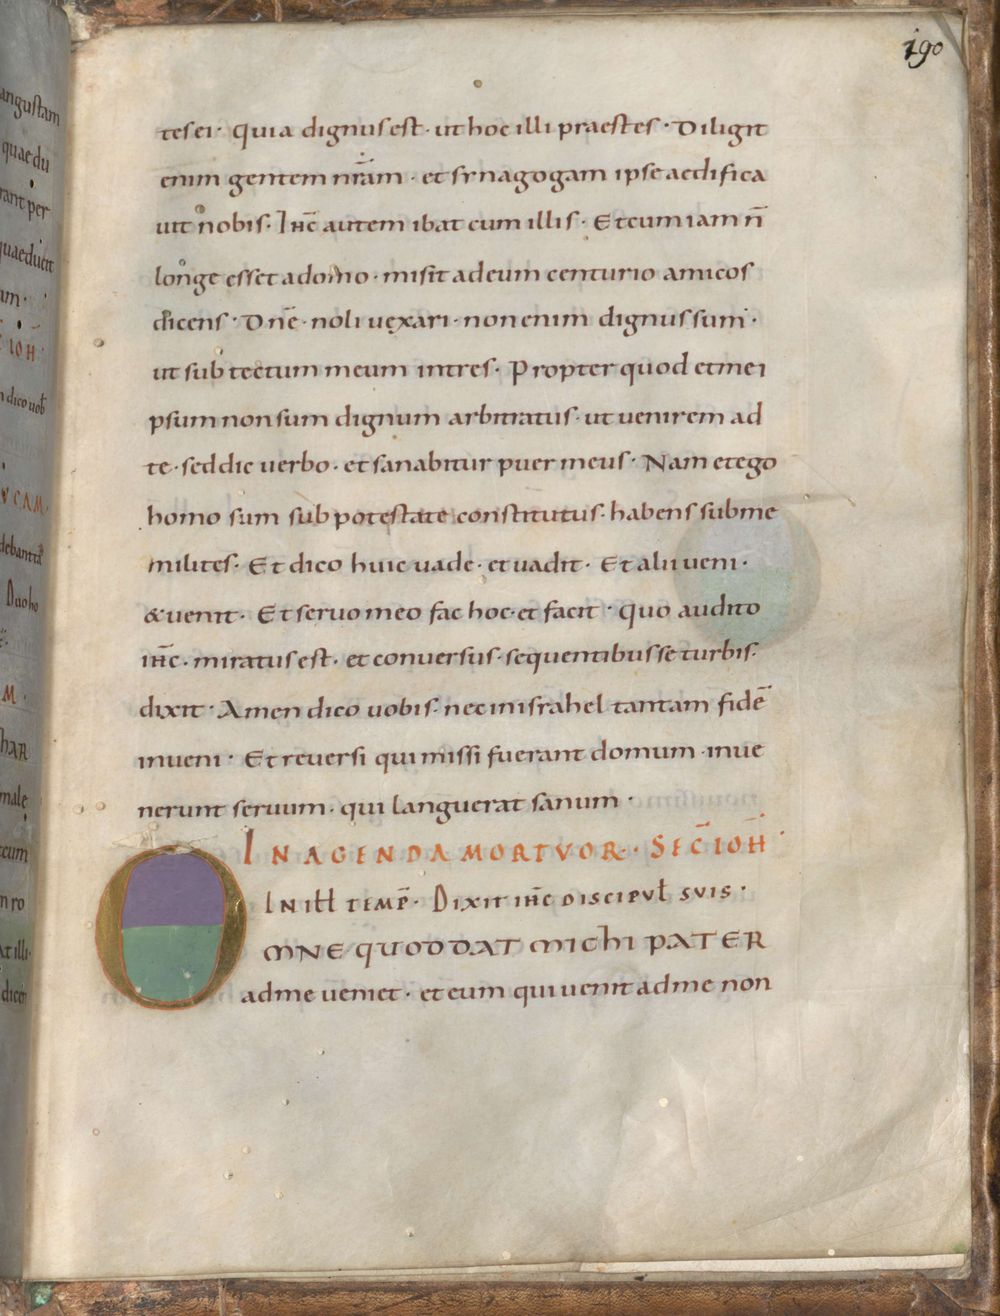 190
tes ei · quia dignus est · ut hoc illi praestes · Diligit
enim gentem nr̄am · et synagogam ipse aedifica
uit nobis · Ihc̄ autem ibat cum illis · Et cum iam n̄
longe esset a domo · misit ad eum centurio amicos
dicens · Dn̄e · noli uexari · non enim dignus sum ·
ut sub tectum meum intres · Propter quod et mei
psum non sum dignum arbitratus · ut uenirem ad
te · sed dic uerbo · et sanabitur puer meus · Nam et ego
homo sum sub potestate constitutus · habens sub me
milites · Et dico huic uade · et uadit · Et alii ueni ·
& uenit · Et seruo meo fac hoc · et facit · quo audito
ihc̄ · miratus est · et conuersus · sequentibus se turbis ·
dixit · Amen dico uobis · nec in israhel tantam fidē
inueni · Et reuersi qui missi fuerant domum · inue
nerunt seruum · qui languerat sanum ·
IN AGENDA MORTVOR · SEC̄ IOH̄
IN ill̄ TEMP̄ · DIXIT ihc̄ DISCIPUL̄ SUIS ·
OMNE QUOD DAT MICHI PATER
ad me ueniet · et eum qui uenit ad me non
angustam
quae du
rant per
quae ducit
IOH̄
dico uob̄
UCAM
Duo ho
M ·
HAR
male
cum
n ro
at illi ·
dicit